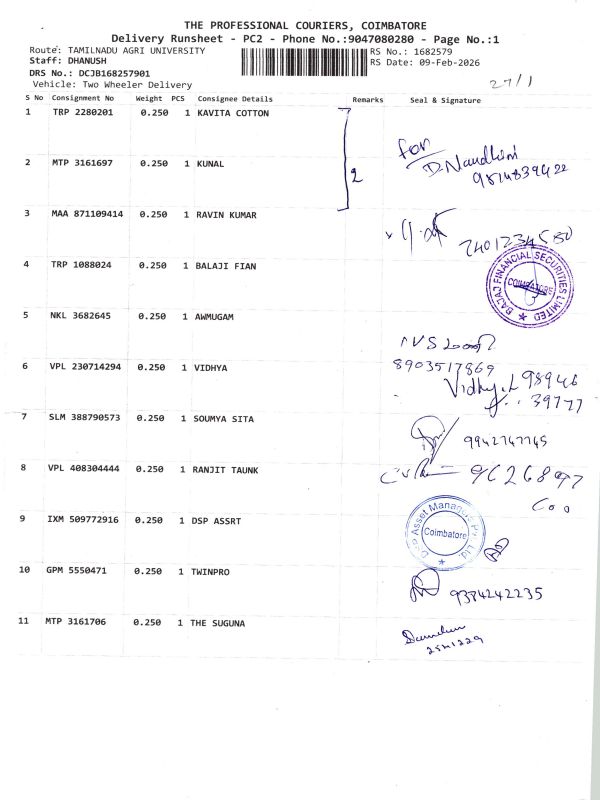 THE PROFESSIONAL COURIERS, COIMBATORE
Delivery Runsheet - PC2 - Phone No.:9047080280 - Page No.:1
Route: TAMILNADU AGRI UNIVERSITY RS No.: 1682579
Staff: DHANUSH RS Date: 09-Feb-2026
DRS No.: DCJB168257901
Vehicle: Two Wheeler Delivery 27/1
S No Consignment No Weight PCS Consignee Details Remarks Seal & Signature
1 TRP 2280201 0.250 1 KAVITA COTTON
for
2 MTP 3161697 0.250 1 KUNAL 2
D. Nandhini
3 MAA 871109414 0.250 1 RAVIN KUMAR
4 TRP 1088024 0.250 1 BALAJI FIAN
BAJAJ FINANCIAL SECURITIES LIMITED
COIMBATORE
5 NKL 3682645 0.250 1 AWMUGAM
8903517869
6 VPL 230714294 0.250 1 VIDHYA
Vidhya.L 98946
39777
7 SLM 388790573 0.250 1 SOUMYA SITA
9942747745
8 VPL 408304444 0.250 1 RANJIT TAUNK
9626897
600
9 IXM 509772916 0.250 1 DSP ASSRT
DSP Asset Managers Pvt. Ltd.
Coimbatore
10 GPM 5550471 0.250 1 TWINPRO
9384242235
11 MTP 3161706 0.250 1 THE SUGUNA